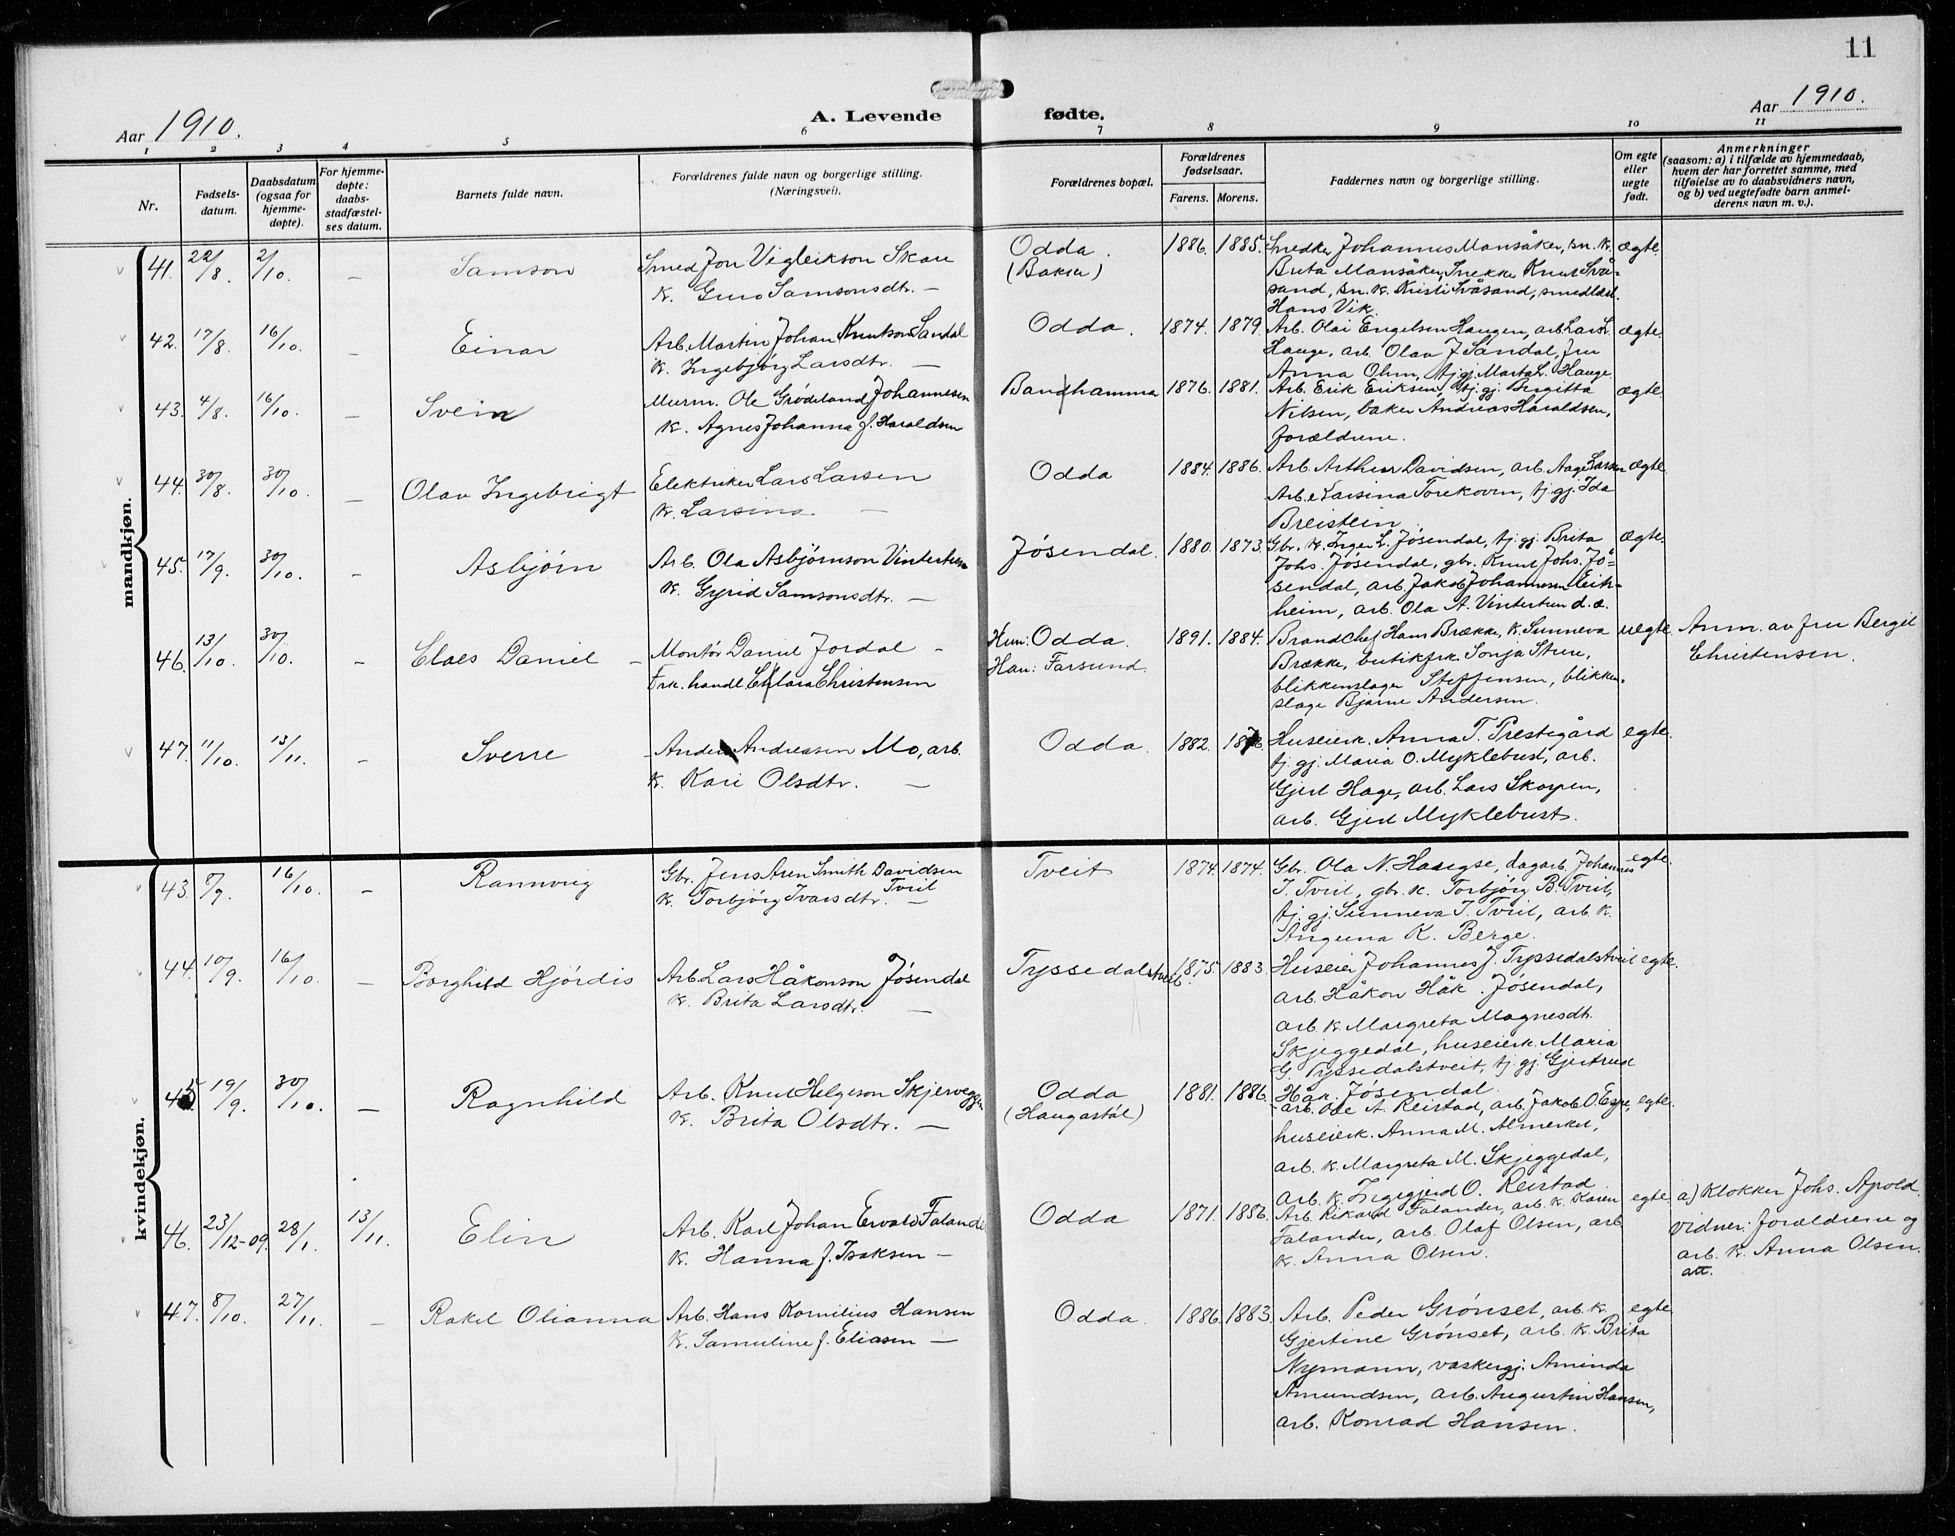 11
Aar 1910.
A. Levende fødte.
Aar 1910.
1 2 3 4 5 6 7 8 9 10 11
Nr.
Fødsels-
datum.
Daabsdatum
(ogsaa for
hjemme-
døpte).
For hjemme-
døpte:
daabs-
stadfæstel-
ses datum.
Barnets fulde navn.
Forældrenes fulde navn og borgerlige stilling.
(Næringsvei).
Forældrenes bopæl.
Forældrenes
fødselsaar.
Farens. Morens.
Faddernes navn og borgerlige stilling.
Om egte
eller
uegte
født.
Anmerkninger
(saasom: a) i tilfælde av hjemmedaab,
hvem der har forrettet samme, med
tilføielse av to daabsvidners navn,
og b) ved uegtefødte barn anmel-
derens navn m. v.).
mandkjøn.
41. 22/8 2/10. – Samson
Smed Jon Vigleikson Skare
K. Guro Samsonsdtr. –
Odda.
(Bakke)
1886. 1885.
Smedk. Johannes Mansåker, sn. k.
Brita Mansåker, Snekker Knut Svå-
sand, sn. k. Kristi Svåsand, smedlærl.
Hans Vik.
ægte.
42. 17/8 16/10. – Einar
Arb. Martin Johan Knutson Sandal
K. Ingebjørg Larsdtr. –
Odda.
1874. 1879.
Arb. Olai Engelsen Haugen, arb. Lars L.
Hauge, arb. Olav J. Sandal, fru
Anna Ohm, tj. gj. Marta L. Hauge
ægte.
43. 4/8. 16/10. – Svein
Murm. Ole Grødeland Johannesen
K. Agnes Johanna f. Haraldsen
Bandhamma
1876. 1881.
Arb. Erik Eriksen, tj. gj. Birgitta
Nilsen, baker Andreas Haraldsen,
forældrene.
ægte
44. 30/8. 30/10. – Olav Ingebrigt
Elektriker Lars Larsen
K. Larsina –
Odda
1884. 1886.
Arb. Arthur Davidsen, arb. Aage Larsen
Arb. e Larsina Torekovn, tj. gj. Ida
Breistein
ægte.
45. 17/9. 30/10. – Asbjørn
Arb. Ola Asbjørnson Vintertun
K. Gyrid Samsonsdtr. –
Jøsendal.
1880. 1873.
Gbr. k. Inger L. Jøsendal, tj. gj. Brita
Johs. Jøsendal, gbr. Knut Johs. Jø-
sendal, arb. Jakob Johannesen Eit-
heim, arb. Ola A. Vintertun d. æ.
ægte.
46. 13/10. 30/10. – Claes Daniel –
Montør Daniel Jordal –
Frk. handl. Clara Christensen
Hun: Odda.
Han: Farsund.
1891. 1884.
Brandchef Hans Brække, k. Sunneva
Brække, butikfrk. Sonja Sture,
blikkenslager Steffensen, blikken-
slage Bjarne Andersen.
uegte.
Anm. av fru Bergit
Christensen.
47. 11/10. 13/11. – Sverre
Anders Andreasen Mo, arb.
K. Kari Olsdtr. –
Odda.
1882.
Huseierk. Anna T. Prestegård
tj. gj. Maria O. Myklebust, arb.
Gjert Hage, arb. Lars Skorpen,
arb. Gjert Myklebust.
egte.
kvindekjøn.
43. 7/9. 16/10. – Rannveig
Gbr. Jens Aren Smith Davidsen
Tveit
K. Torbjørg Ivarsdtr. –
Tveit
1874. 1874.
Gbr. Ola N. Haugse, dagarb. Johannes
I. Tveit, gbr. k. Torbjørg B. Tveit,
tj. gj. Sunneva I. Tveit, arb. k.
Anguna K. Berge.
egte.
44. 10/9. 16/10. – Borghild Hjørdis
Arb. Lars Håkonson Jøsendal
K. Brita Larsdtr. –
Tyssedalstveit.
1875. 1883.
Huseier Johannes J. Tyssedalstveit
arb. Håkon Håk. Jøsendal,
arb. k. Margreta Magnesdt.
Skjeggedal, huseierk. Maria
G. Tyssedalstveit, tj. gj. Gjertrud
Håk. Jøsendal.
egte.
45 19/9. 30/10. – Ragnhild
Arb. Knut Helgeson Skjerveggen
K. Brita Olsdtr. –
Odda
(Haugastøl)
1881. 1886.
arb. Ole A. Reistad, arb. Jakob O. Espe,
huseierk. Anna M. Almerket,
arb. k. Margreta M. Skjeggedal,
arb. k. Ingegjerd O. Reistad
egte.
46. 23/12-09. 28/1. 13/11. Elin
Arb. Karl Johan Ervald Falander
K. Hanna f. Isaksen –
Odda
1871. 1886.
Arb. Rikard Falander, arb. k. Karen
Falander, arb. Olaf Olsen, arb.
k. Anna Olsen.
egte
a) Klokker Johs. Apold.
Vidner: forældrene og
arb. k. Anna Olsen.
att.
47. 8/10. 27/11. – Rakel Olianna
Arb. Hans Kornilius Hansen
K. Samueline f. Eliasen –
Odda.
1886. 1883.
Arb. Peder Grønset, arb. k.
Gjertine Grønset, arb. k. Brita
Nymann, vaskergj. Aminda
Amundsen, arb. Augustin Hansen,
arb. Konrad Hansen.
egte